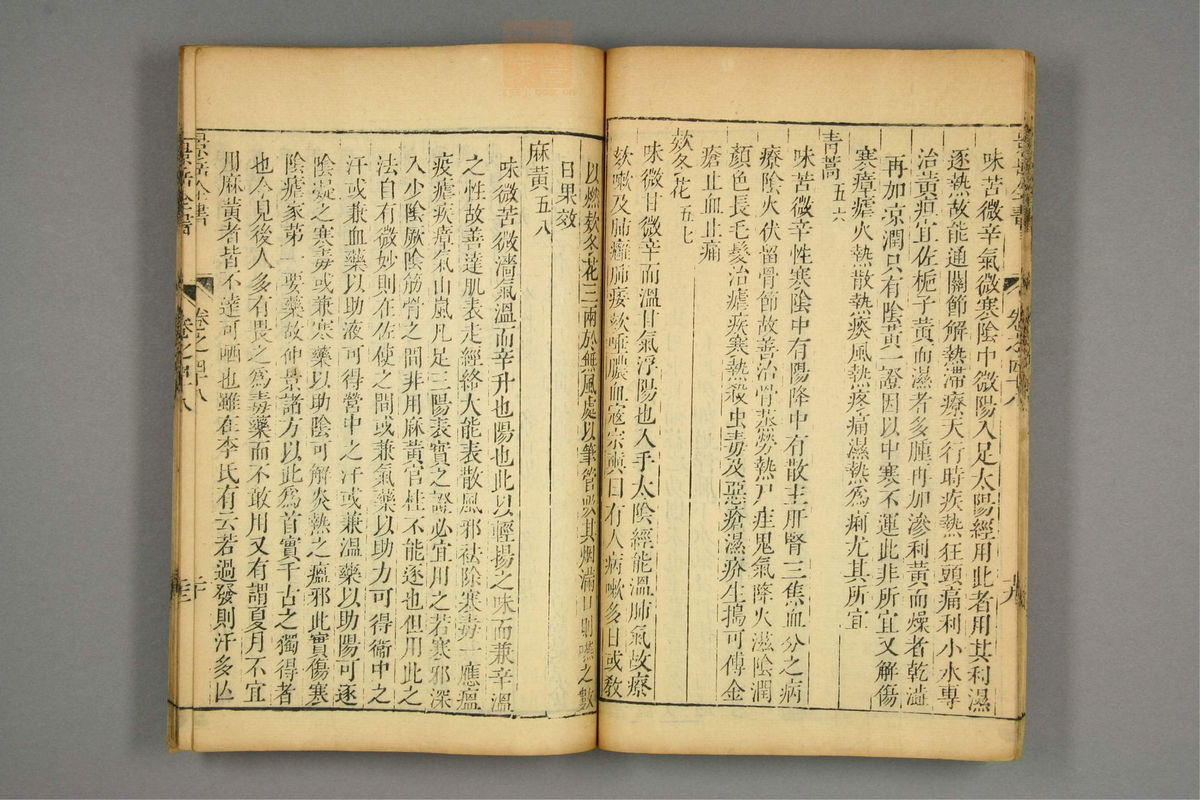 味苦微辛氣微寒陰中微陽入足太陽經用此者用其利濕
逐熱故能通關節解熱滯療天行時疾熱狂頭痛利小水專
治黃疸宜佐梔子黃而濕者多腫再加滲利黃而燥者乾澁
再加凉潤只有陰黃一證因以中寒不運此非所宜又解傷
寒瘴瘧火熱散熱痰風熱疼痛濕熱為痢尤其所宜
青蒿五六
味苦微辛性寒陰中有陽降中有散主肝腎三焦血分之病
療陰火伏留骨節故善治骨蒸勞熱尸疰鬼氣降火滋陰潤
顏色長毛髮治瘧疾寒熱殺虫毒及惡瘡濕疥生搗可傅金
瘡止血止痛
欵冬花五七
味微甘微辛而溫甘氣浮陽也入手太陰經能溫肺氣故療
欬嗽及肺癰肺痿欬唾膿血寇宗奭曰有人病嗽多日或敎
以燃欵冬花三兩於無風處以筆管吸其烟滿口則嚥之數
日果效
麻黃五八
味微苦微濇氣溫而辛升也陽也此以輕揚之味而兼辛溫
之性故善達肌表走經絡大能表散風邪祛除寒毒一應瘟
疫瘧疾瘴氣山嵐凡足三陽表實之證必宜用之若寒邪深
入少陰厥陰筋骨之間非用麻黃官桂不能逐也但用此之
法自有微妙則在佐使之間或兼氣藥以助力可得衛中之
汗或兼血藥以助液可得營中之汗或兼溫藥以助陽可逐
陰凝之寒毒或兼寒藥以助陰可解炎熱之瘟邪此實傷寒
陰瘧家第一要藥故仲景諸方以此爲首實千古之獨得者
也今見後人多有畏之爲毒藥而不敢用又有謂夏月不宜
用麻黃者皆不達可哂也雖在李氏有云若過發則汗多亾
景岳全書
卷之四十八